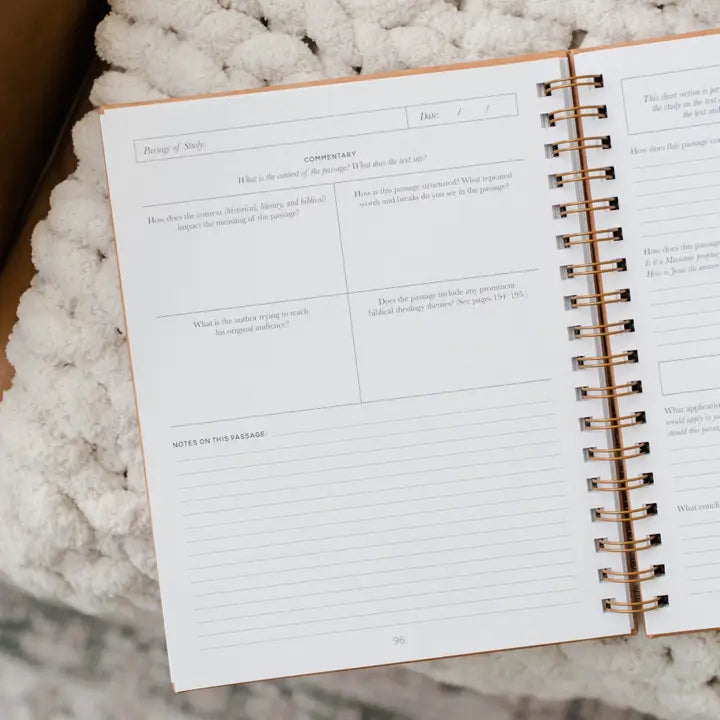 Passage of Study:
Date: / /
COMMENTARY
What is the context of the passage? What does the text say?
How does the context (historical, literary, and biblical)
impact the meaning of the passage?
How is this passage structured? What repeated
words and breaks do you see in the passage?
What is the author trying to teach
his original audience?
Does the passage include any prominent
biblical theology themes? (See pages 194–195.)
NOTES ON THIS PASSAGE:
96
This short section is
the study on the text
the text and
How does this passage
How does this passage
Is it a Messianic
How is Jesus the answer
What application
would apply to
should this passage
What